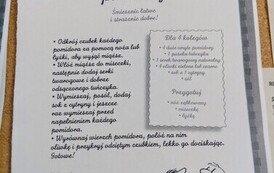 Smacznie łatwo
i strasznie dobre!
• Odkrój czubek każdego
pomidora za pomocą noża lub
łyżki, aby wyjąć miąższ.
• Włóż miąższ do miseczki,
następnie dodaj serki
twarogowe i dobrze
odsączonego tuńczyka.
• Wymieszaj, posól, dodaj
sok z cytryny i jeszcze
raz wymieszaj przed
napełnieniem każdego
pomidora.
• Wyrównaj wierzch pomidora, połóż na nim
oliwkę i przykryj odciętym czubkiem, lekko go dociskając.
Gotowe!
Dla 4 kolegów
• 4 duże pomidory
• 1 puszka tuńczyka
• 4 oliwki
• sok z 1 cytryny
• sól
Przygotuj
• nóż
• miseczkę
• łyżkę